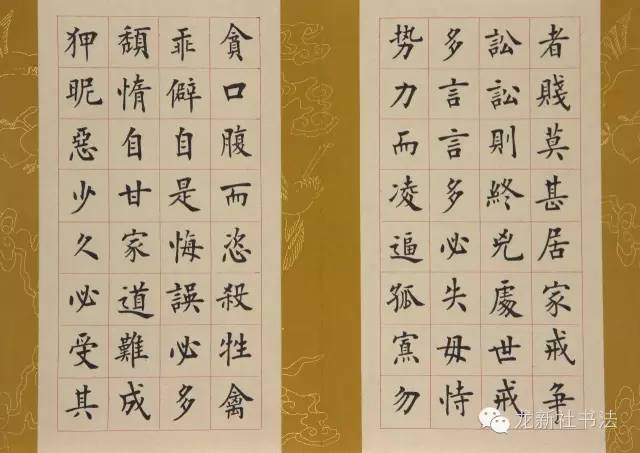 者賤莫甚居家戒爭
訟訟則終兇處世戒
多言言多必失毋恃
势力而凌逼孤寡勿
貪口腹而恣殺牲禽
乖僻自是悔誤必多
頽惰自甘家道難成
狎昵惡少久必受其
龙新社书法